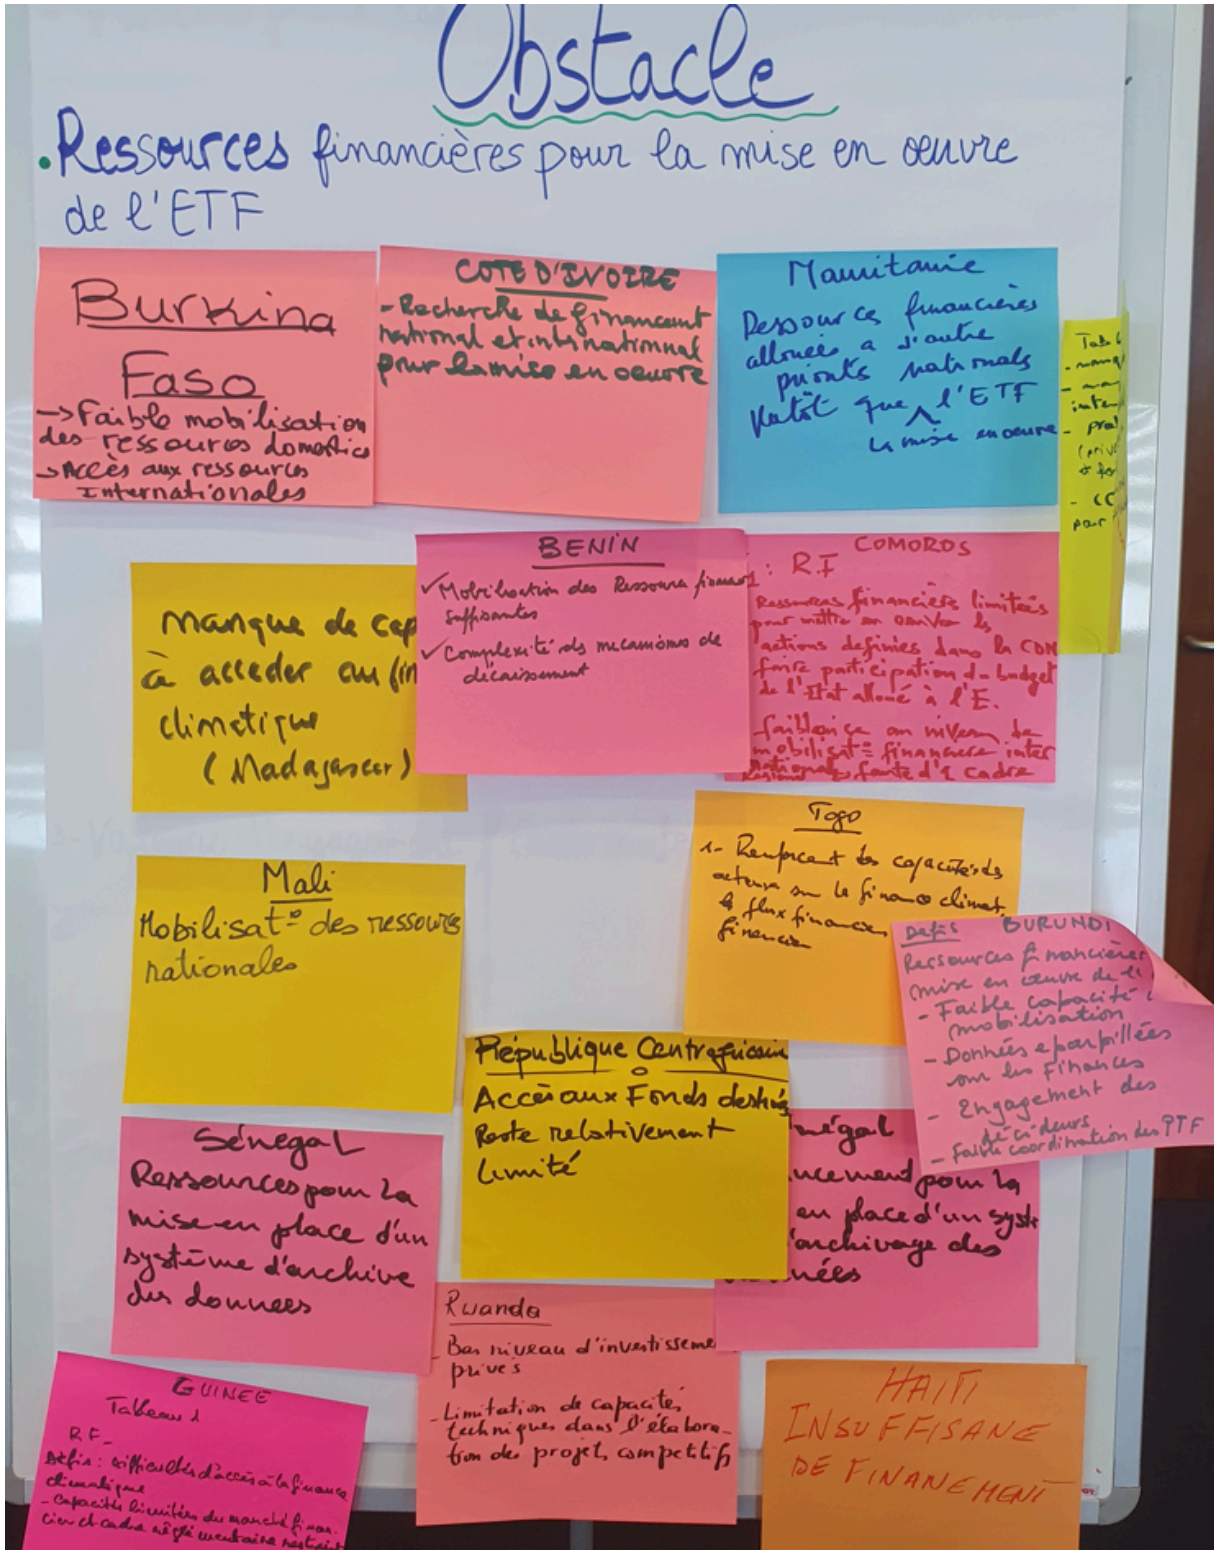 Obstacle
. Ressources financières pour la mise en œuvre
de l'ETF
Burkina
Faso
-> Faible mobilisation
des ressources domestics
-> Accès aux ressources
Internationales
COTE D'IVOIRE
- Recherche de financent
national et internationnal
pour la mise en oeuvre
Mauritanie
Ressources financières
allouées a d'autre
priorités nationals
plutôt que l'ETF
la mise en oeuvre
manque de cap
à acceder au fin
climatique
(Madagascar)
BENIN
✓ Mobilisation des Ressource
suffisantes
✓ Complexité des mecanismes de
décaissement
COMOROS
1: R.F
Ressources financiers limiteés
pour mettre en oeuvre les
actions definies dans la CDN
faire participation du budget
de l'Etat alloué à l'E.
faiblesse au niveau de
mobilisat° financiere inter
faute d'1 cadre
Togo
1- Renforcent les capacités des
acteurs sur la finance climat.
& flux financier
financier
Mali
Mobilisat° des ressources
nationales
Defis BURUNDI
Ressources financières
mise en œuvre de l'
- Faible capacité
mobilisation
- Données eparpillées
sur les Finances
- Engagement des
décideurs
- Faible coordination des PTF
République Centrafricain
Accès aux Fonds destinés
Reste relativement
Limité
Sénégal
Ressources pour la
mise en place d'un
système d'archive
des donnees
négal
ncement pour la
en place d'un syst
'archivage des
nées
Rwanda
- Bas niveau d'investisseme
privés
- Limitation de capacités
techniques dans l'élabora-
tion des projets competitifs
GUINEE
Tableau 1
R F_
Défis : difficultés d'accès à la finance
climatique
- Capacités limitées du marché finan-
cier et cadre réglementaire
HAITI
INSUFFISANE
DE FINANEMENT